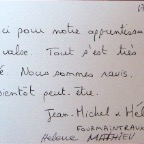 ci pour notre apprentissa
valse. Tout s'est très
é. Nous sommes ravis.
bientôt peut être.
Jean-Michel & Hél
FOURMAINTRAUX
Helene MATHIEU